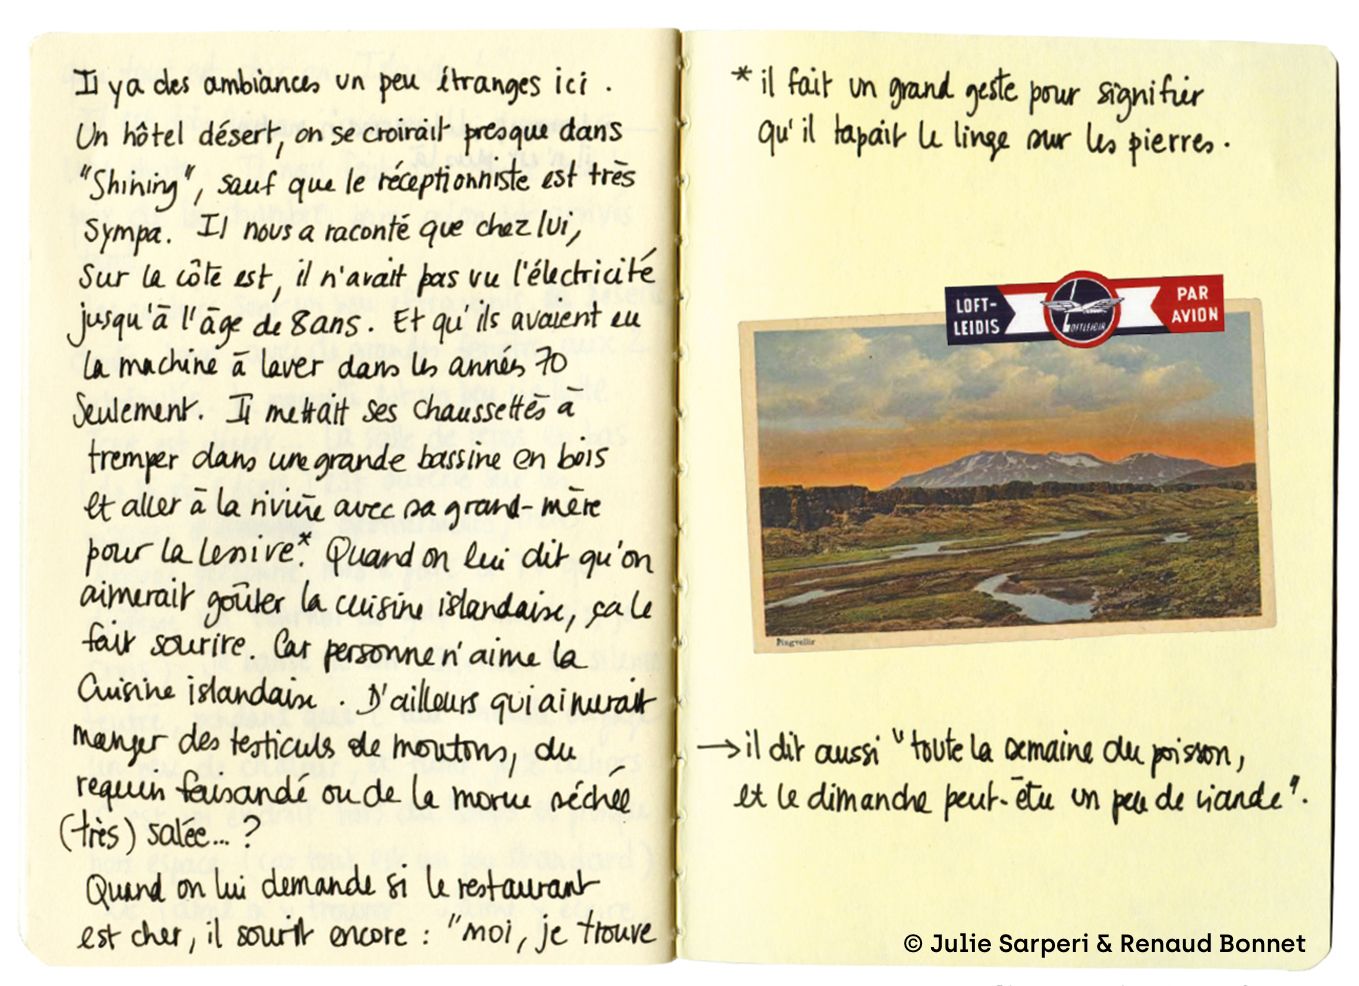 Il y a des ambiances un peu étranges ici.
Un hôtel désert, on se croirait presque dans
"Shining", sauf que le réceptionniste est très
sympa. Il nous a raconté que chez lui,
sur la côte est, il n'avait pas vu l'électricité
jusqu'à l'âge de 8 ans. Et qu'ils avaient eu
la machine à laver dans les années 70
seulement. Il mettait ses chaussettes à
tremper dans une grande bassine en bois
et aller à la rivière avec sa grand-mère
pour la lessive*. Quand on lui dit qu'on
aimerait goûter la cuisine islandaise, ça le
fait sourire. Car personne n'aime la
cuisine islandaise. D'ailleurs qui aimerait
manger des testicules de moutons, du
requin faisandé ou de la morue séchée
(très) salée... ?
Quand on lui demande si le restaurant
est cher, il sourit encore : "moi, je trouve
* il fait un grand geste pour signifier
qu'il tapait le linge sur les pierres.
LOFT-
LEIDIS
LOFTLEIDIR
PAR
AVION
Þingvellir
→ il dit aussi "toute la semaine du poisson,
et le dimanche peut-être un peu de viande".
© Julie Sarperi & Renaud Bonnet